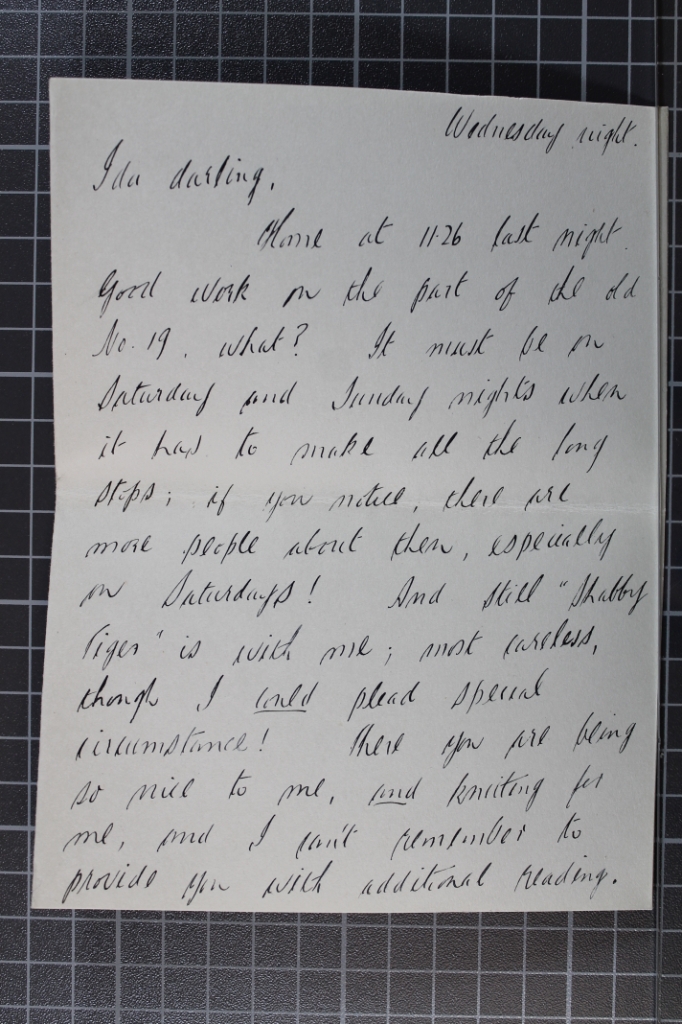 Wednesday night.
Ida darling,
Home at 11.26 last night.
Good work on the part of the old
No. 19, what? It must be on
Saturday and Sunday nights when
it has to make all the long
stops; if you notice, there are
more people about then, especially
on Saturdays! And still "Shabby
Tiger" is with me; most careless,
though I could plead special
circumstance! There you are being
so nice to me, and knitting for
me, and I can't remember to
provide you with additional reading.